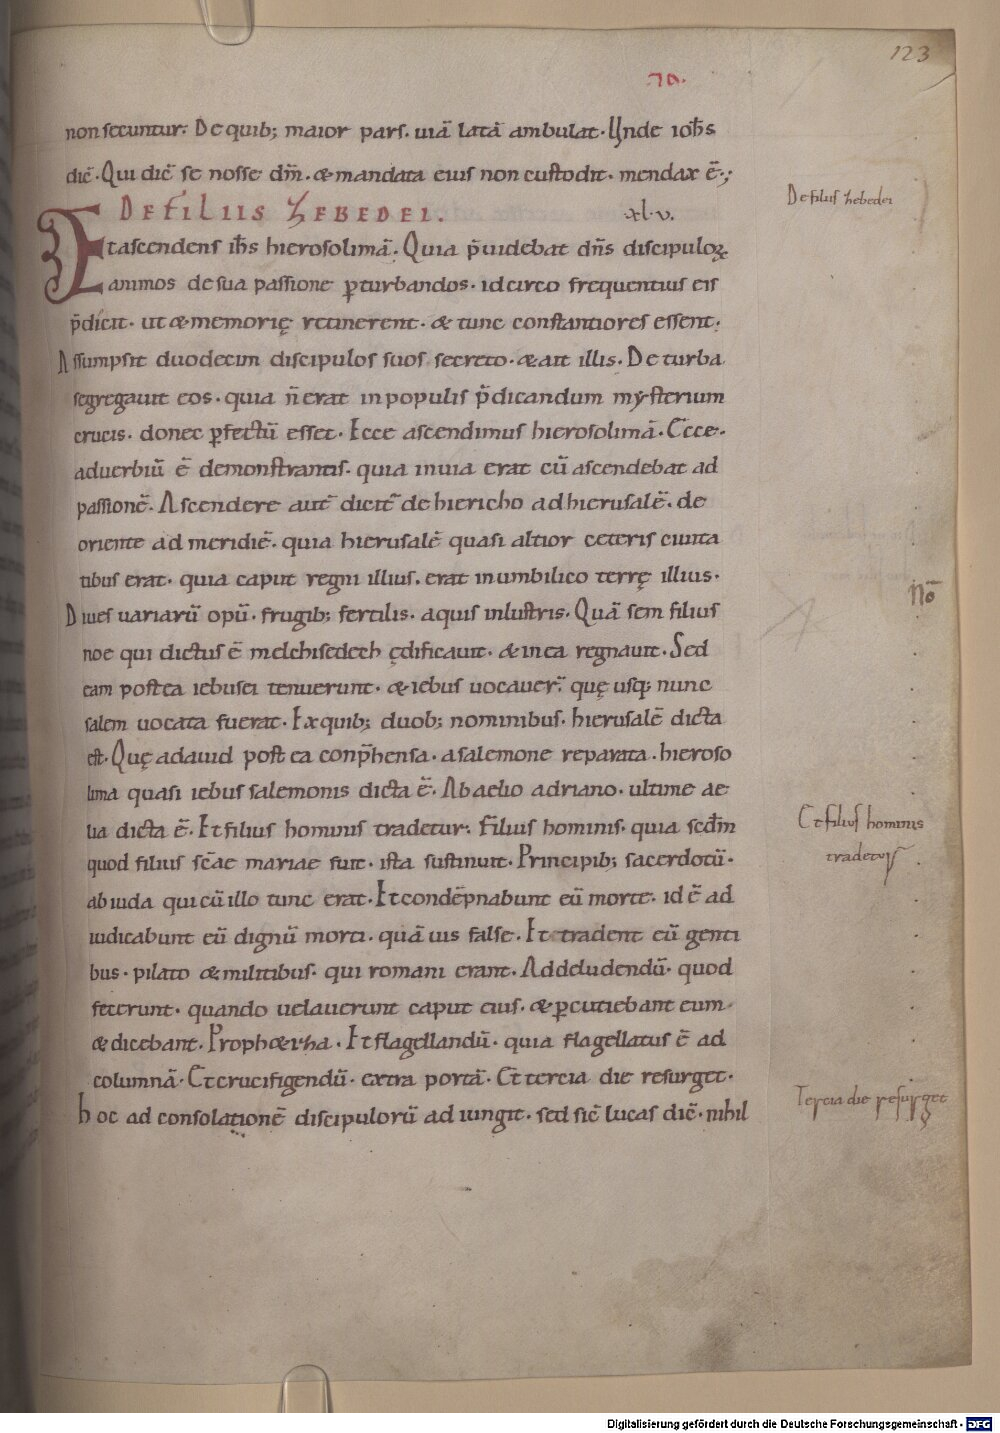 123
non secuntur. De quib; maior pars. uiā latā ambulat. Unde ioħs
dic̄. Qui dic̄ se nosse dm̄. & mandata eius non custodit. mendax ē.,
DE FILIIS ZEBEDEI. xl.v.
De filiis zebedei
Et ascendens ih̄s hierosolimā. Quia p̄uidebat dn̄s discipuloꝝ
animos de sua passione ꝑturbandos. idcirco frequentius eis
p̄dicit. ut & memorię retinerent. & tunc constantiores essent.
Assumpsit duodecim discipulos suos secreto. & ait illis. De turba
segregauit eos. quia n̄ erat in populis p̄dicandum mysterium
crucis. donec ꝑfectū esset. Ecce ascendimus hierosolimā. Ecce.
aduerbiū ē demonstrantis. quia in uia erat cū ascendebat ad
passionē. Ascendere aut̄ dicit̄ de hiericho ad hierusalē. de
oriente ad meridiē. quia hierusalē quasi altior ceteris ciuita
tibus erat. quia caput regni illius. erat in umbilico terrę illius.
Nō
Diues uariarū opū. frugib; fertilis. aquis inlustris. Quā sem filius
noe qui dictus ē melchisedech ędificauit. & in ea regnauit. Sed
eam postea iebusei tenuerunt. & iebus uocauer̄. quę usq; nunc
salem uocata fuerat. Ex quib; duob; nominibus. hierusalē dicta
est. Quę a dauid post ea conp̄hensa. a salemone reparata. hieroso
lima quasi iebus salemonis dicta ē. Ab aelio adriano. ultime ae
lia dicta ē. Et filius hominis tradetur. Filius hominis. quia sed̄m
Et filius hominis
tradetur
quod filius sc̄ae mariae fuit. ista sustinuit. Principib; sacerdotū.
ab iuda qui cū illo tunc erat. Et condēpnabunt eū morte. id ē ad
iudicabunt eū dignū morti. quā uis false. Et tradent eū genti
bus. pilato & militibus. qui romani erant. Ad deludendū. quod
fecerunt. quando uelauerunt caput eius. & ꝑcutiebant eum
& dicebant. Proph&iza. Et flagellandū. quia flagellatus ē ad
columnā. Et crucifigendū. extra portā. Et tercia die resurget.
Tercia die resurget
hoc ad consolationē discipulorū ad iungit. sed sic̄ lucas dic̄. nihil
Digitalisierung gefördert durch die Deutsche Forschungsgemeinschaft - DFG